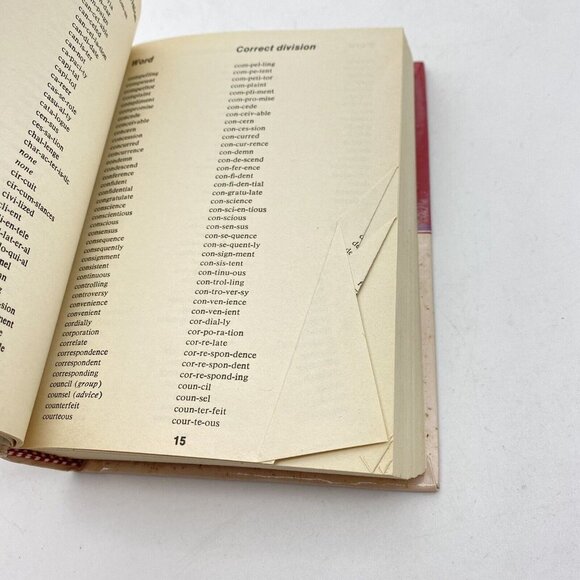 can-cel-able
can-di-date
can-is-ter
can-not
ca-pa-ci-ty
capi-tal
capi-tol
ca-reer
cas-se-role
casu-al-ty
cata-logue
cen-sus
ces-sa-tion
chal-lenge
char-ac-ter-is-tic
none
none
cir-cuit
cir-cum-stances
civi-lized
Word Correct division
compelling com-pel-ling
competent com-pe-tent
competitor com-peti-tor
complaint com-plaint
compliment com-pli-ment
compromise com-pro-mise
concede con-cede
conceivable con-ceiv-able
concern con-cern
concession con-ces-sion
concurred con-curred
concurrence con-cur-rence
condemn con-demn
condescend con-de-scend
conference con-fer-ence
confident con-fi-dent
confidential con-fi-den-tial
congratulate con-gratu-late
conscience con-science
conscientious con-sci-en-tious
conscious con-scious
consensus con-sen-sus
consequence con-se-quence
consequently con-se-quent-ly
consignment con-sign-ment
consistent con-sis-tent
continuous con-tinu-ous
controlling con-trol-ling
controversy con-tro-ver-sy
convenience con-ven-ience
convenient con-ven-ient
cordially cor-dial-ly
corporation cor-po-ra-tion
correlate cor-re-late
correspondence cor-re-spon-dence
correspondent cor-re-spon-dent
corresponding cor-re-spond-ing
council (group) coun-cil
counsel (advice) coun-sel
counterfeit coun-ter-feit
courteous cour-te-ous
15